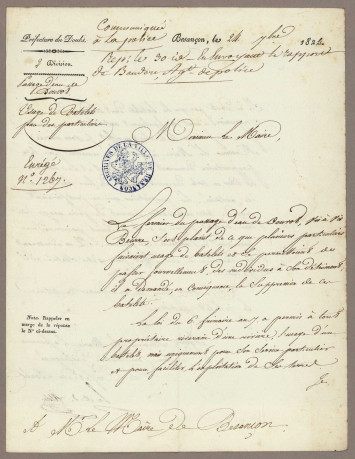 Communiqué
à la police
Préfecture du Doubs.
Besançon, le 24 7bre 182
2 Division.
Rep. le 30 id. en envoyant le rapport
de Baudou, Agt de police
Passage d'eau de
Usage de batelet
par des particuliers
Enrégé
N° 1267.
Monsieur le Maire,
ARCHIVES DE LA VILLE DE BESANÇON
Le fermier du passage d'eau de vis à vis
Beurre, s'est plaint de ce que plusieurs particuliers
faisaient usage de batelets et se permettaient de
passer journellement des individus à son détriment;
il a demandé, en conséquence, la suppression de ces
batelets.
La loi du 6 frimaire an 7 a permis à tout
propriétaire riverain d'une rivière, l'usage d'un
batelet, mais uniquement pour son service particulier
et pour faciliter l'exploitation de ses terres
Nota. Rappeler en
marge de la réponse
le N° ci-dessus.
Je
A Mr le Maire de Besançon.